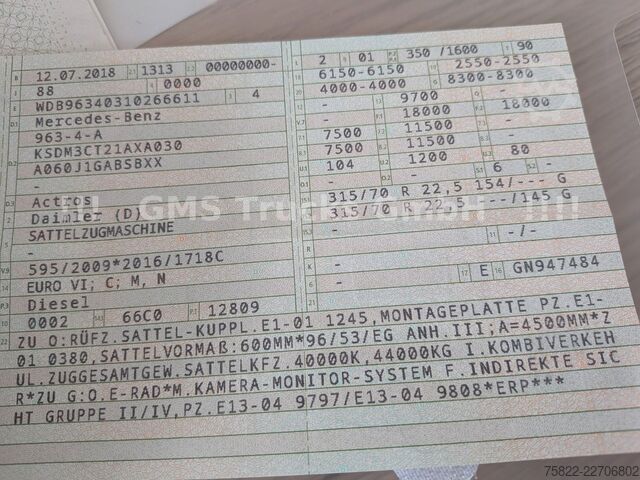 B 12.07.2018 2.1 1313 2.2 00000000-
J 88 4 0000
E WDB96340310266611 3 4
D.1 Mercedes-Benz
963-4-A
D.2 KSDM3CT21AXA030
A060J1GABSBXX
-
D.3 Actros
2 Daimler (D)
5 SATTELZUGMASCHINE
-
V.9 595/2009*2016/1718C
14 EURO VI; C; M, N
P.3 Diesel
10 0002 14.1 66C0 P.1 12809
L 2 9 01 P.2 P.4 350 /1600 T 90
18 6150-6150 19 2550-2550
20 4000-4000 G 8300-8300
- 9700 -
- 18000 18000
7500 11500 -
7500 11500 -
U.1 104 1200 80
- - S.1 6 S.2 -
15.1 315/70 R 22,5 154/--- G
15.2 315/70 R 22,5 ---/145 G
15.3 -
R - 11 -/-
K -
6 - 17 E 16 GN947484
21
22 ZU O:RÜFZ.SATTEL-KUPPL.E1-01 1245,MONTAGEPLATTE PZ.E1-
01 0380,SATTELVORMAß:600MM*96/53/EG ANH.III;A=4500MM*Z
UL.ZUGGESAMTGEW.SATTELKFZ.40000K,44000KG I.KOMBIVERKEH
R*ZU G:O.E-RAD*M.KAMERA-MONITOR-SYSTEM F.INDIREKTE SIC
HT GRUPPE II/IV,PZ.E13-04 9797/E13-04 9808*ERP***
!!! GMS Trucks GmbH !!!!
75822-22706802